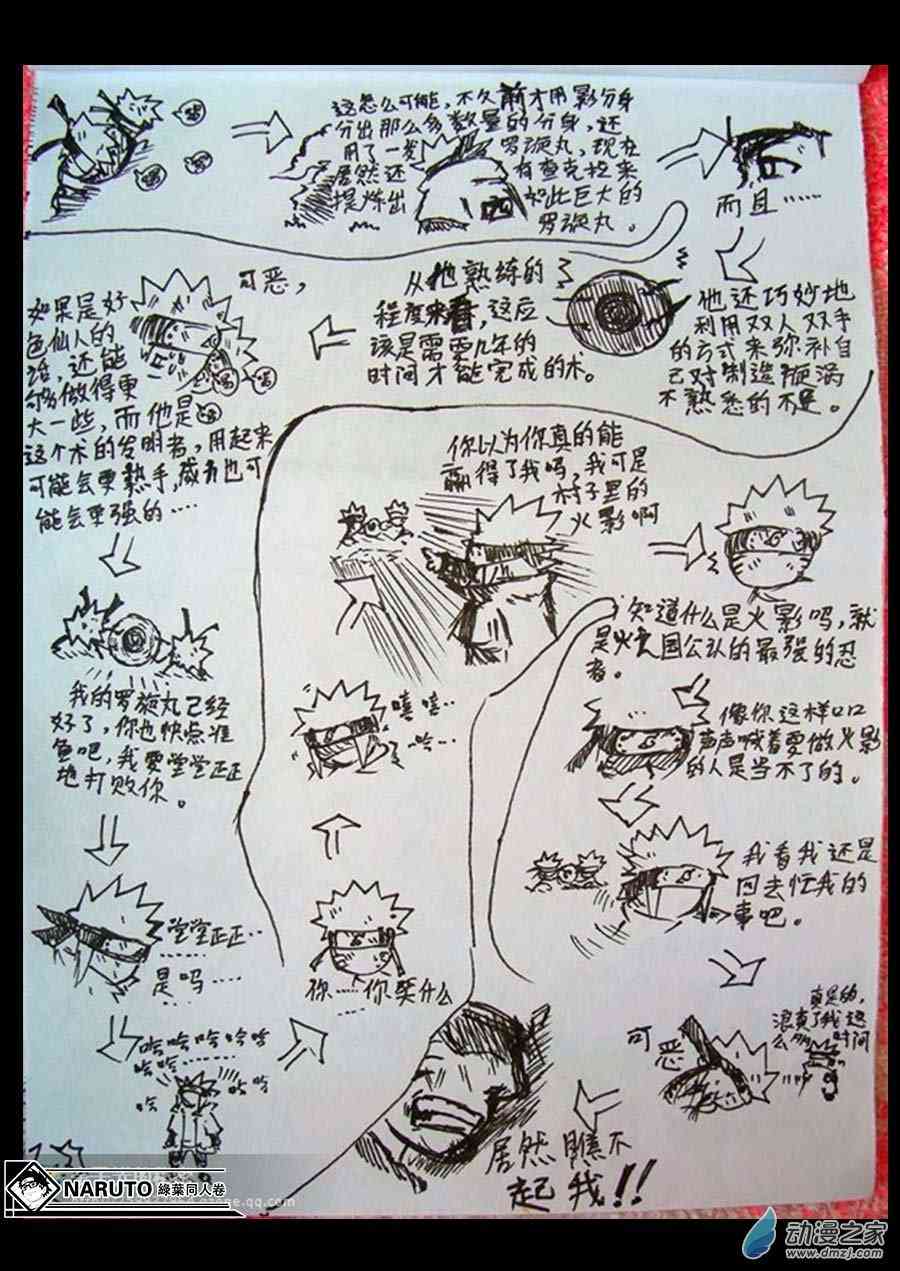 这怎么可能,不久前才用影分身
分出那么多数量的分身,还
用了一发罗旋丸,现在
居然还有查克拉来
提炼出如此巨大的
罗旋丸。
而且……
他还巧妙地
利用双人双手
的方式来弥补自
己对制造旋涡
不熟悉的不足。
从他熟练的
程度来看,这应
该是需要几年的
时间才能完成的术。
可恶,
如果是好
色仙人的
话,还能
够做得更
大一些,而他是
这个术的发明者,用起来
可能会更熟手,威力也可
能会更强的……
我的罗旋丸已经
好了,你也快点准
备吧,我要堂堂正正
地打败你。
堂堂正正……
是吗……
哈哈哈哈哈
哈哈……
哈哈
哈
你……你笑什么
……
嘻嘻……
…哈……
你以为你真的能
赢得了我吗,我可是
村子里的
火影啊
知道什么是火影吗,就
是火之国公认的最强的忍
者。
像你这样口口
声声喊着要做火影
的人是当不了的。
我看我还是
回去忙我的
事吧。
真是的,
浪费了我这
么多时间
可恶
居然瞧不
起我!!
NARUTO 綠葉同人卷
.qq.com
动漫之家
www.dmzj.com